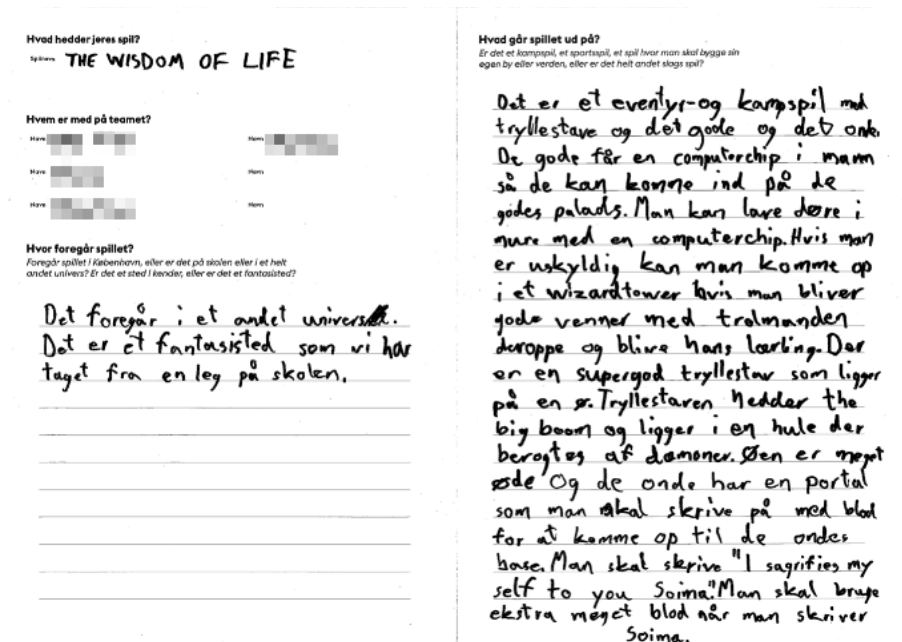 Hvad hedder jeres spil?
Spilnavn THE WISDOM OF LIFE
Hvem er med på teamet?
Navn
Navn
Navn
Navn
Navn
Navn
Hvor foregår spillet?
Foregår spillet i København, eller er det på skolen eller i et helt
andet univers? Er det et sted I kender, eller er det et fantasisted?
Det foregår i et andet univers.
Det er et fantasisted som vi har
taget fra en leg på skolen.
Hvad går spillet ud på?
Er det et kampspil, et sportsspil, et spil hvor man skal bygge sin
egen by eller verden, eller er det helt andet slags spil?
Det er et eventyr-og kampspil med
tryllestave og det gode og det onde.
De gode får en computerchip i
så de kan komme ind på de
godes palads. Man kan lave døre i
mure med en computerchip. Hvis man
er uskyldig kan man komme op
i et wizardtower hvis man bliver
gode venner med trolmanden
deroppe og blive hans lærling. Der
er en supergod tryllestav som ligger
på en ø. Tryllestaven hedder the
big boom og ligger i en hule der
berogtes af dæmoner. Øen er meget
øde Og de onde har en portal
som man skal skrive på med blod
for at komme op til de ondes
base. Man skal skrive "I sagrifies my
self to you Soima". Man skal bruge
ekstra meget blod når man skriver
Soima.